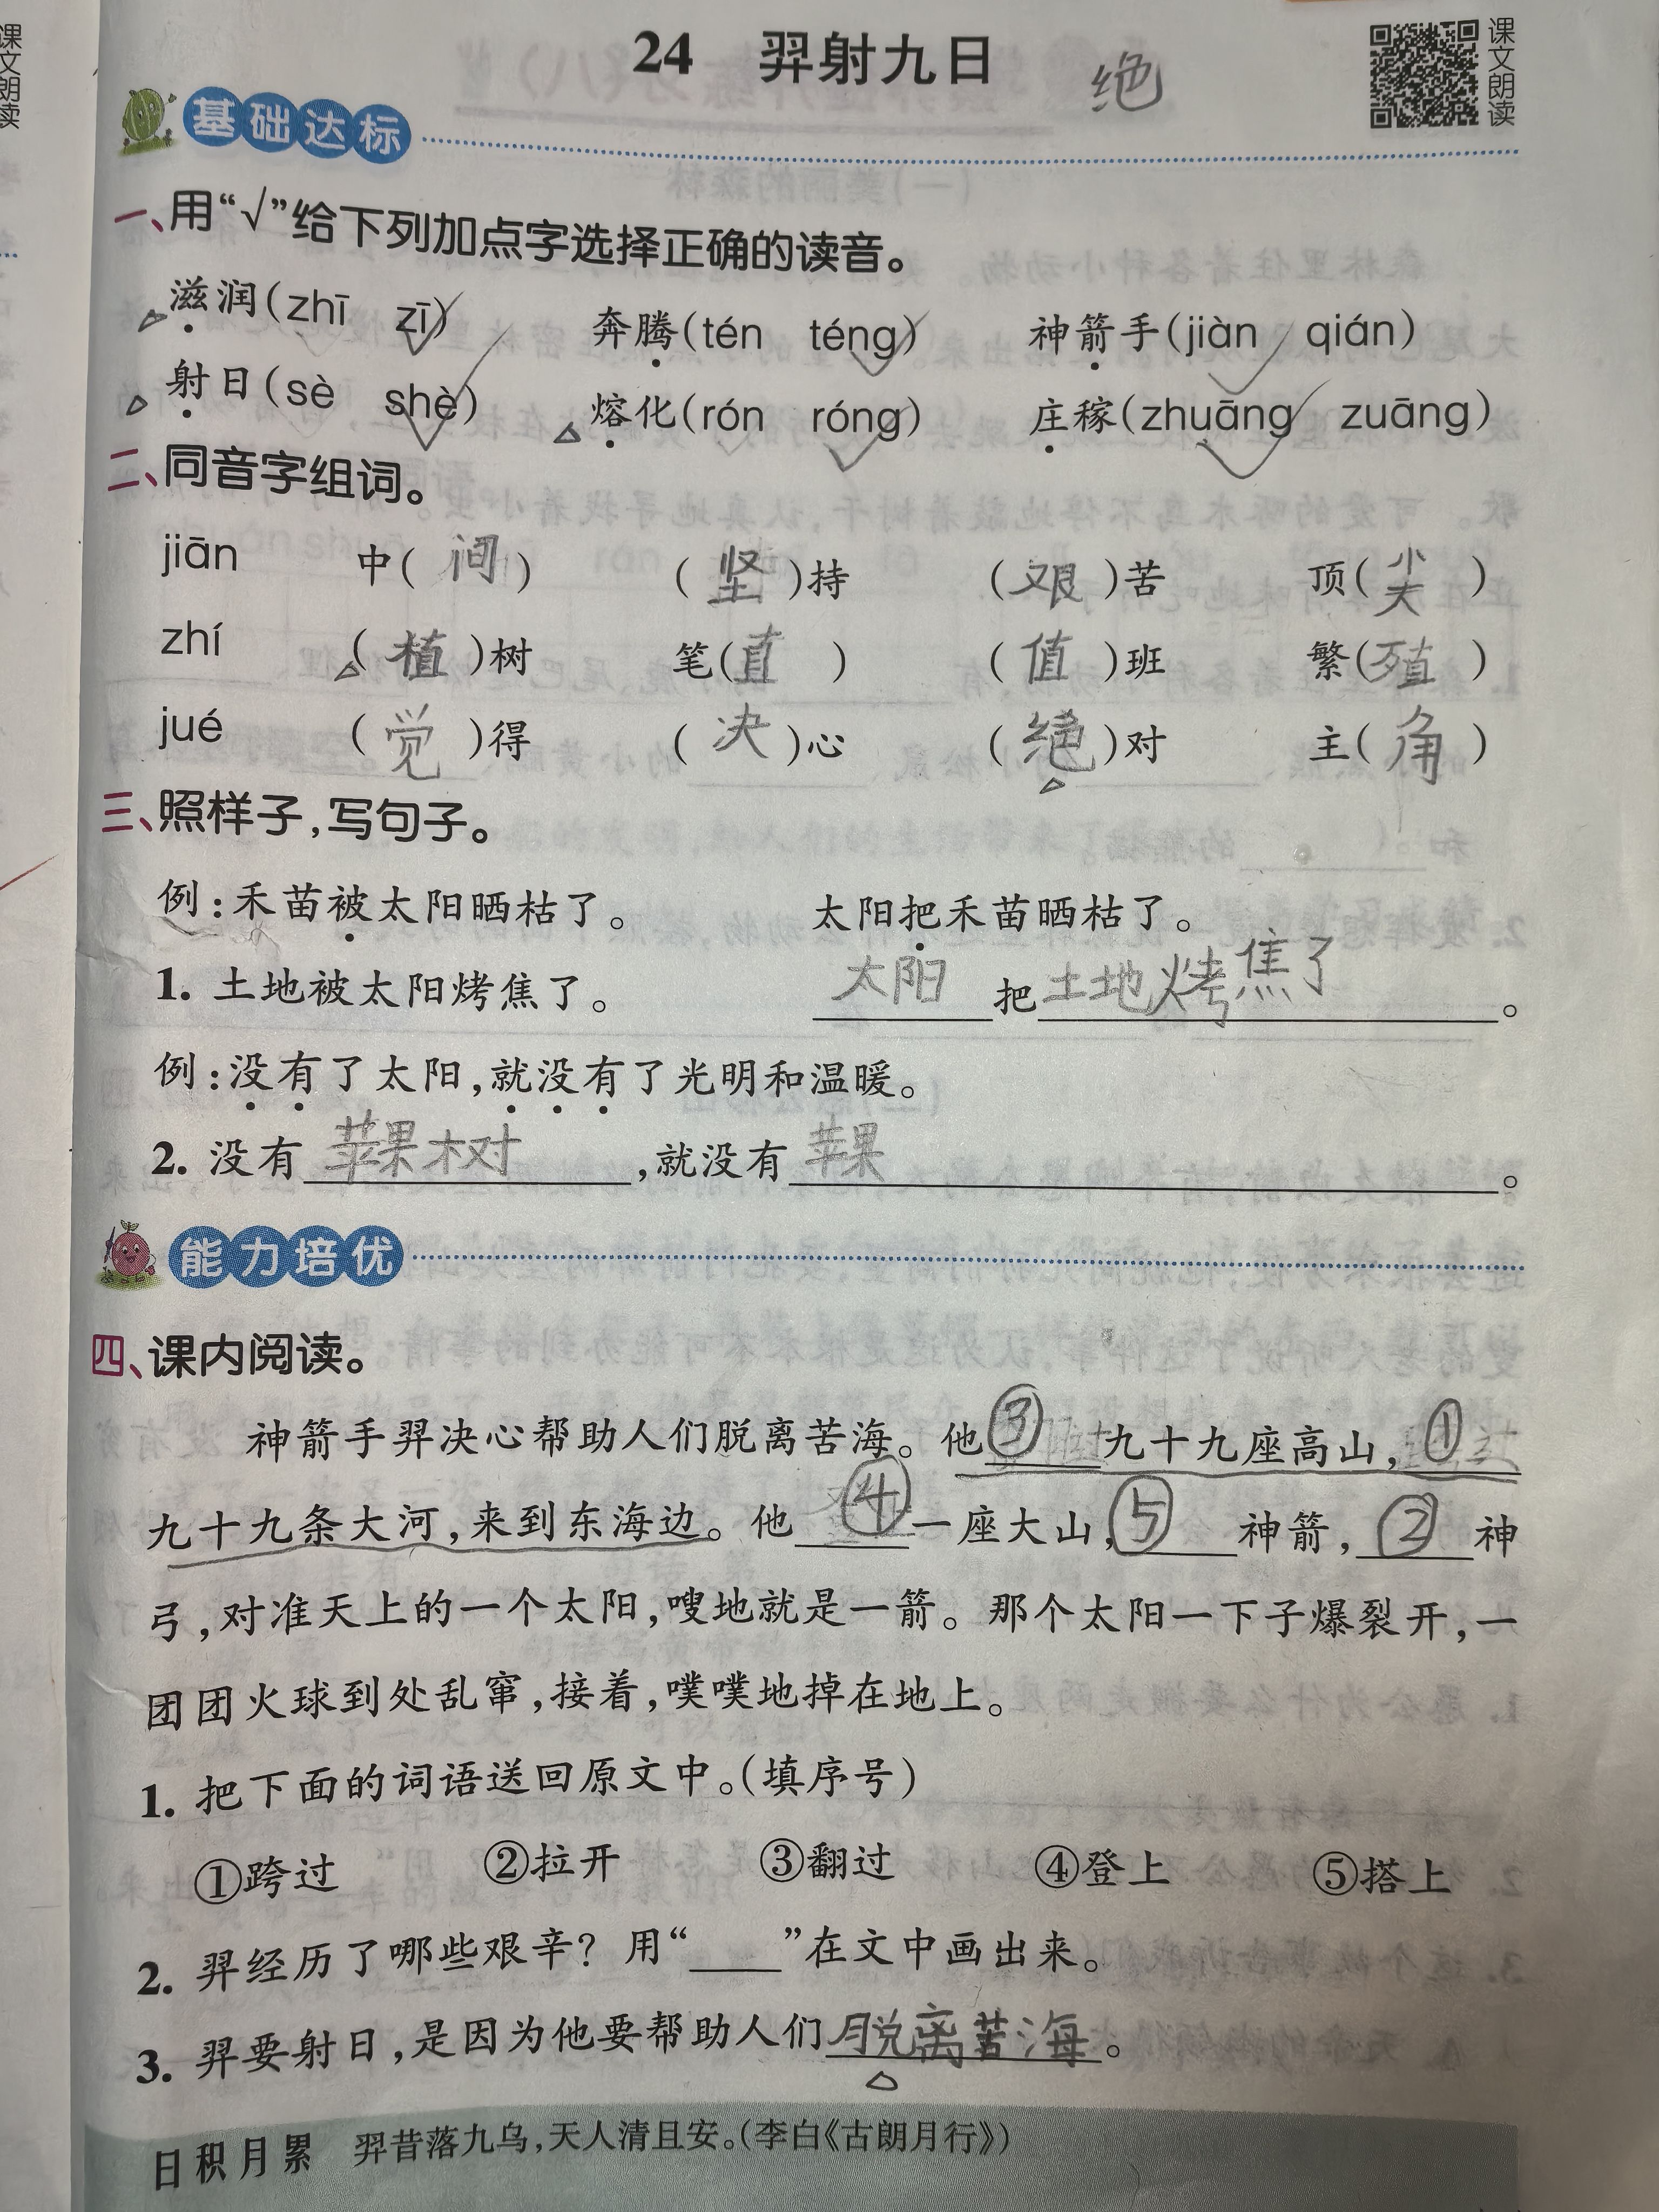 课文朗读
24 羿射九日 绝
课文朗读
基础达标
一、用“√”给下列加点字选择正确的读音。
滋润(zhī zī) 奔腾(tén téng) 神箭手(jiàn qián)
射日(sè shè) 熔化(rón róng) 庄稼(zhuāng zuāng)
二、同音字组词。
jiān 中(间) (坚)持 (艰)苦 顶(尖)
zhí (植)树 笔(直) (值)班 繁(殖)
jué (觉)得 (决)心 (绝)对 主(角)
三、照样子,写句子。
例:禾苗被太阳晒枯了。 太阳把禾苗晒枯了。
1. 土地被太阳烤焦了。 太阳把土地烤焦了。
例:没有了太阳,就没有了光明和温暖。
2. 没有苹果树,就没有苹果。
能力培优
四、课内阅读。
神箭手羿决心帮助人们脱离苦海。他③九十九座高山,①
九十九条大河,来到东海边。他④一座大山,⑤神箭,②神
弓,对准天上的一个太阳,嗖地就是一箭。那个太阳一下子爆裂开,一
团团火球到处乱窜,接着,噗噗地掉在地上。
1. 把下面的词语送回原文中。(填序号)
①跨过 ②拉开 ③翻过 ④登上 ⑤搭上
2. 羿经历了哪些艰辛? 用“___”在文中画出来。
3. 羿要射日,是因为他要帮助人们脱离苦海。
日积月累 羿昔落九乌,天人清且安。(李白《古朗月行》)